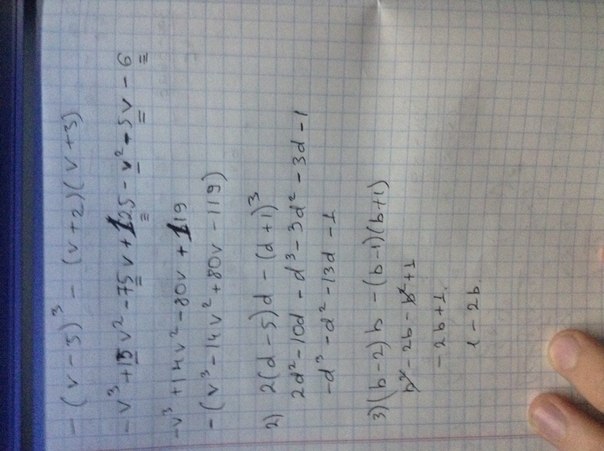 -(v-5)³ - (v+2)(v+3)
-v³+15v²-75v+125-v²-5v-6
-v³+14v²-80v+119
-(v³-14v²+80v-119)
2) 2(d-5)d-(d+1)³
2d²-10d-d³-3d²-3d-1
-d³-d²-13d-1
3)(b-2)b-(b-1)(b+1)
b²-2b-b²+1
-2b+1.
1-2b